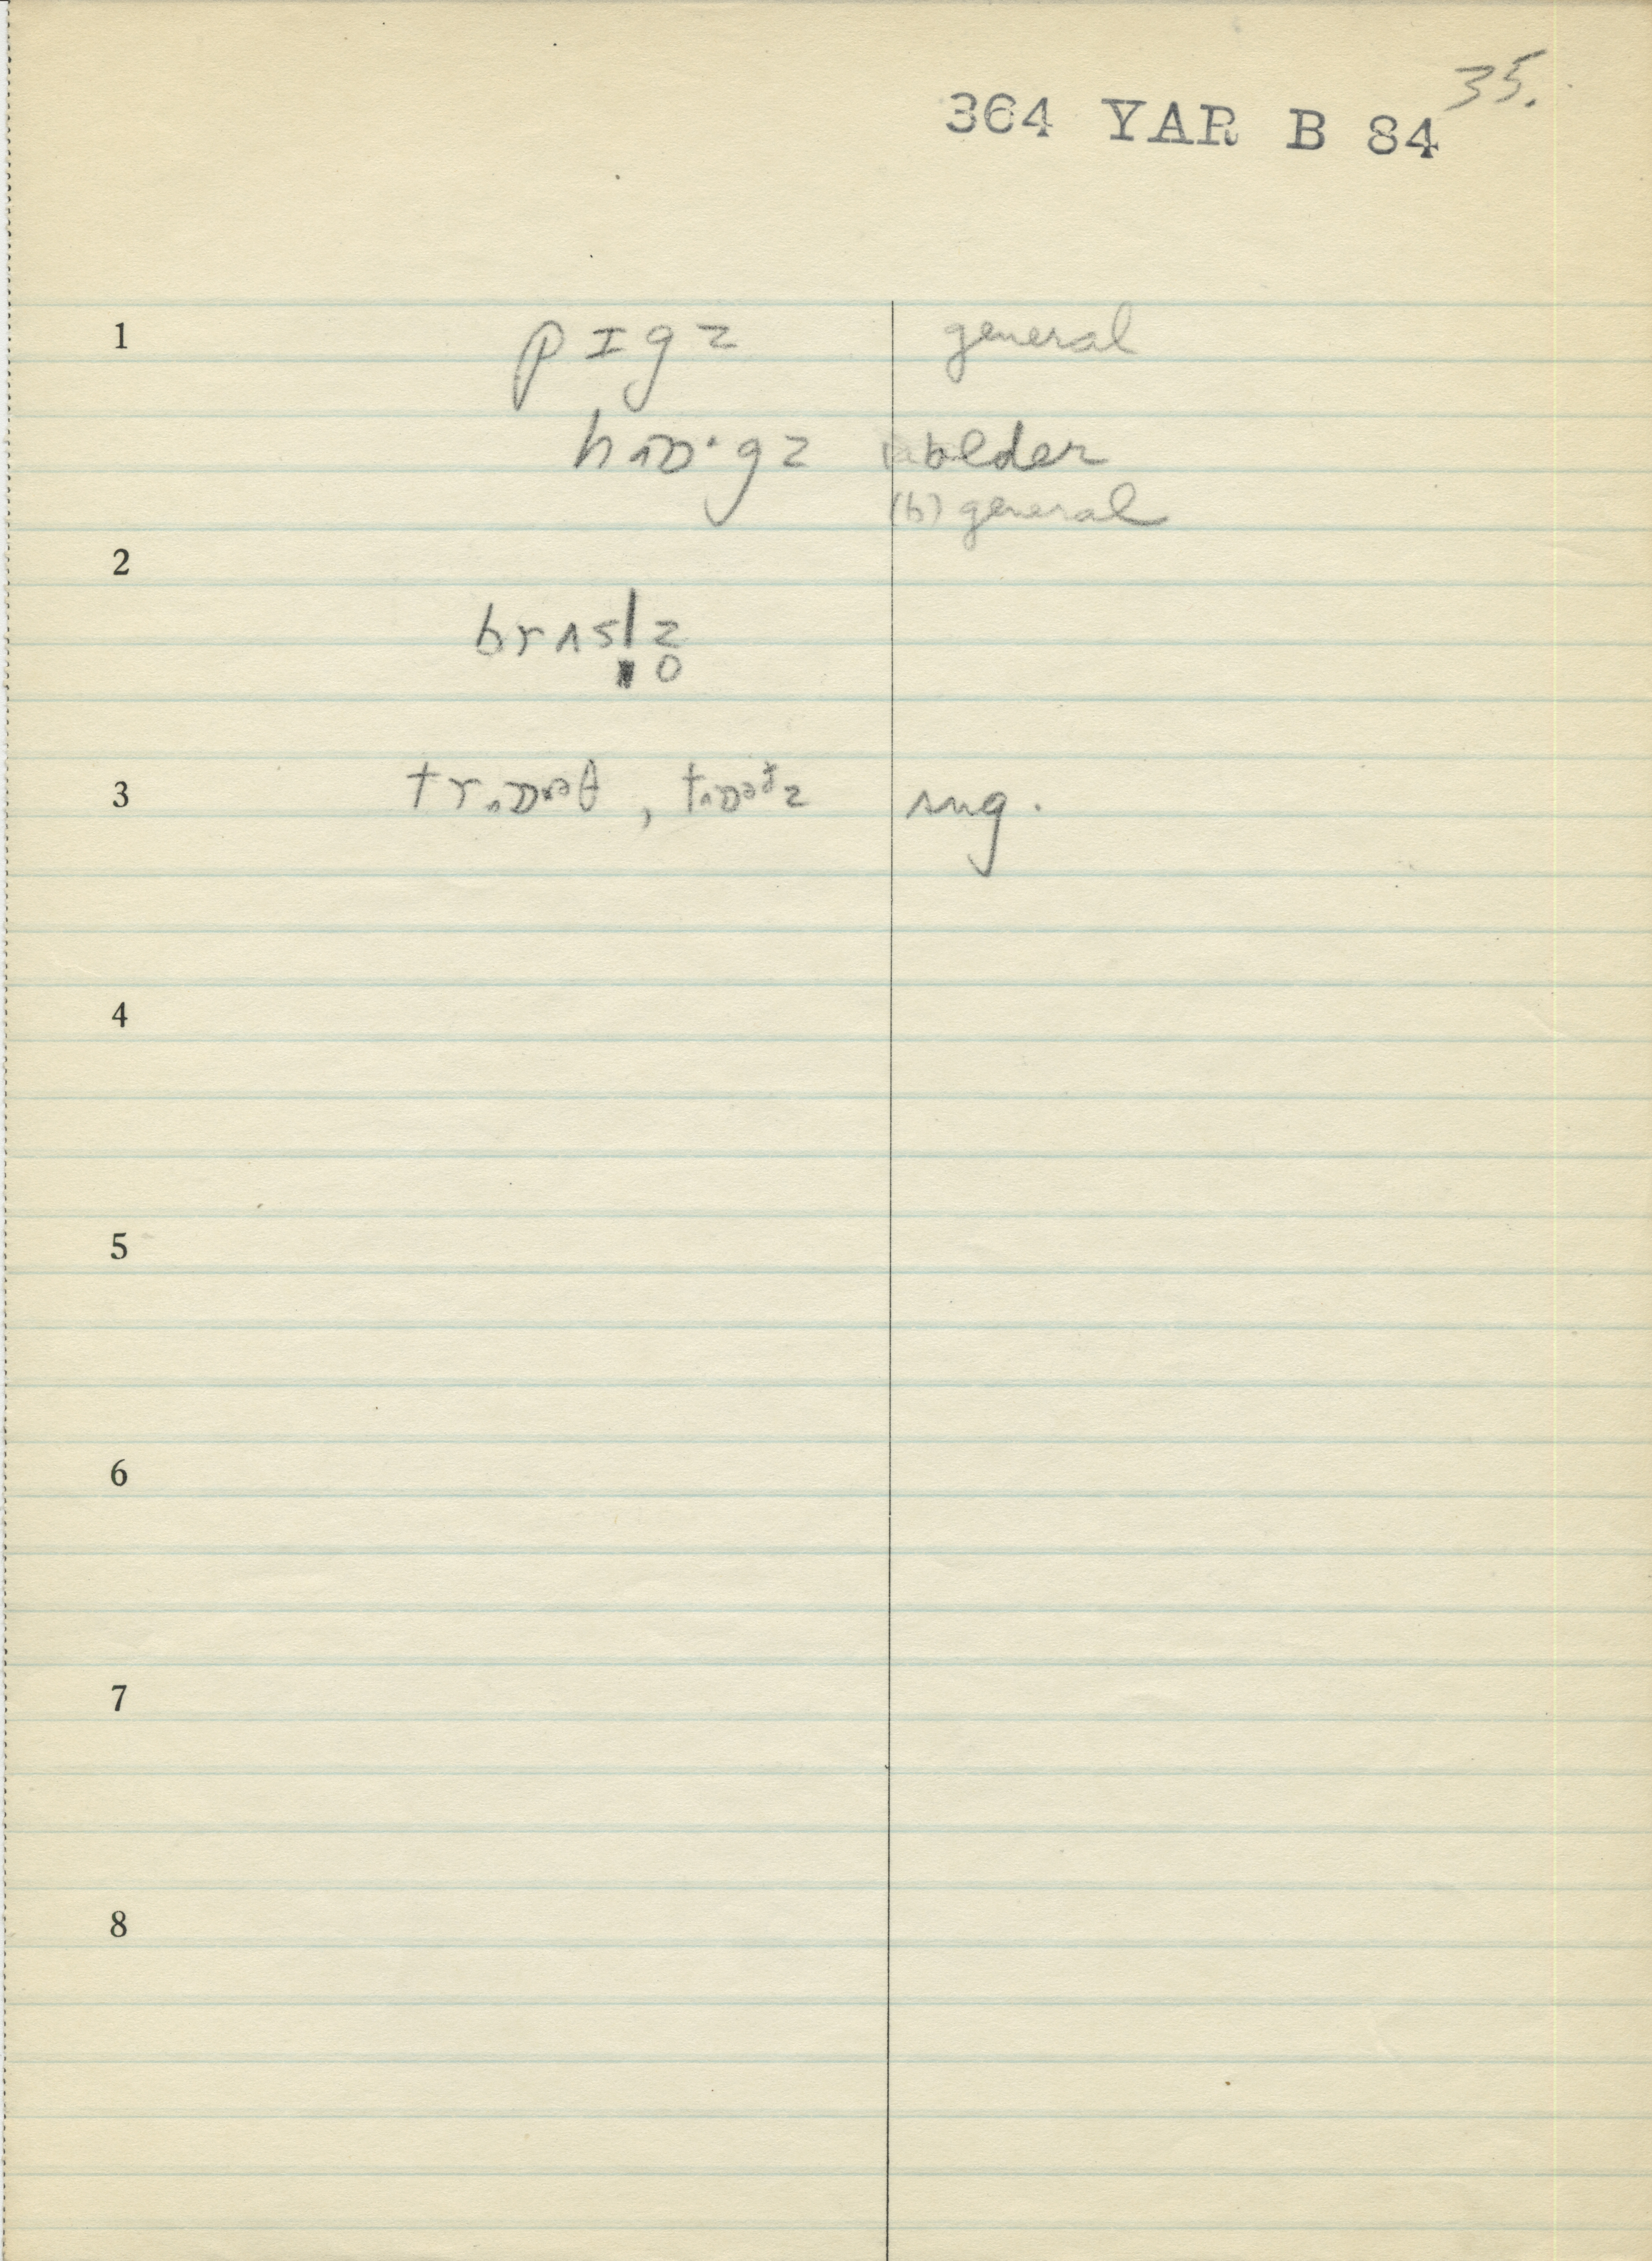 35.
364 YAR B 84
1 pɪgz general
hɒ·gz older
(b) general
2
brʌsl̩z̥
3 trɒəθ, trɒətz sing.
4
5
6
7
8